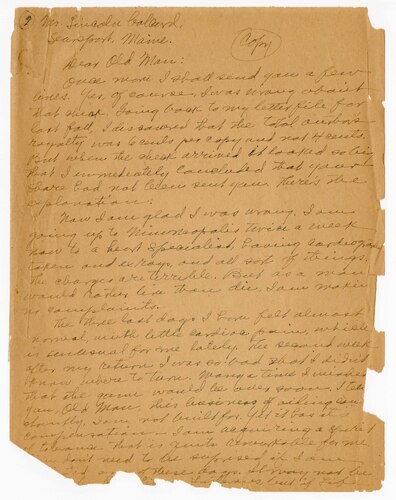 Mr. Lincoln Colcord,
Searsport, Maine.
Copy
Dear Old Man:
Once more I shall send you a few
lines. Yes, of course, I was wrong about
that check. Going back to my letter file for
last fall, I discovered that the total author's
royalty was 6 cents per copy and not 4 cents.
But when the check arrived it looked so big
that I immediately concluded that your
share had not been sent you. There's the
explanation.
Now I am glad I was wrong. I am
going up to Minneapolis twice a week
now to a heart specialist, having cardiograms
taken and x-rays, and all sort of things.
The charges are terrible. But as a man
would rather live than die, I am makin
no complaints.
The three last days I have felt almost
normal, with little cardiac pain, which
is unusual for me lately. The second week
after my return I was so bad that I didn't
know where to turn. Many a time I wished
that the would be over soon. I tell
you, Old Man, this business of ailing con
stantly, I am not built for. Yet it has its
compensation. I am acquiring a
that is quite remarkable for me
need to be surprised if I am
of these days. It may not be